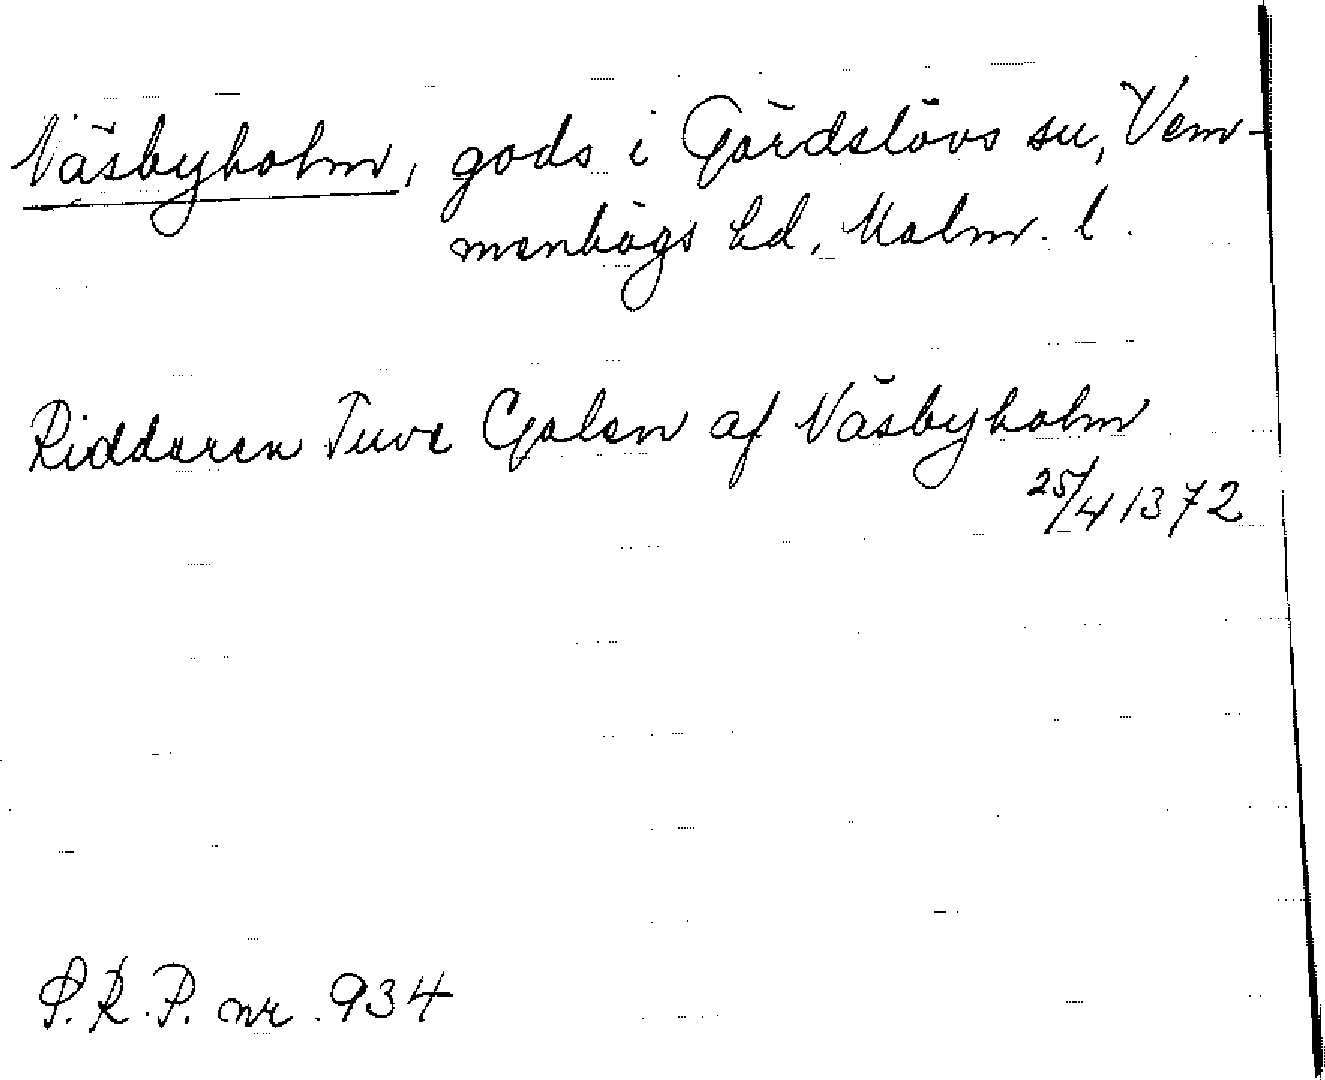 Näsbyholm, gods i Gärdslövs sn, Vem-
menhögs hd, Malm. l.
Riddaren Tuve Galen af Näsbyholm
25/4 1372
S.R.P. nr. 934